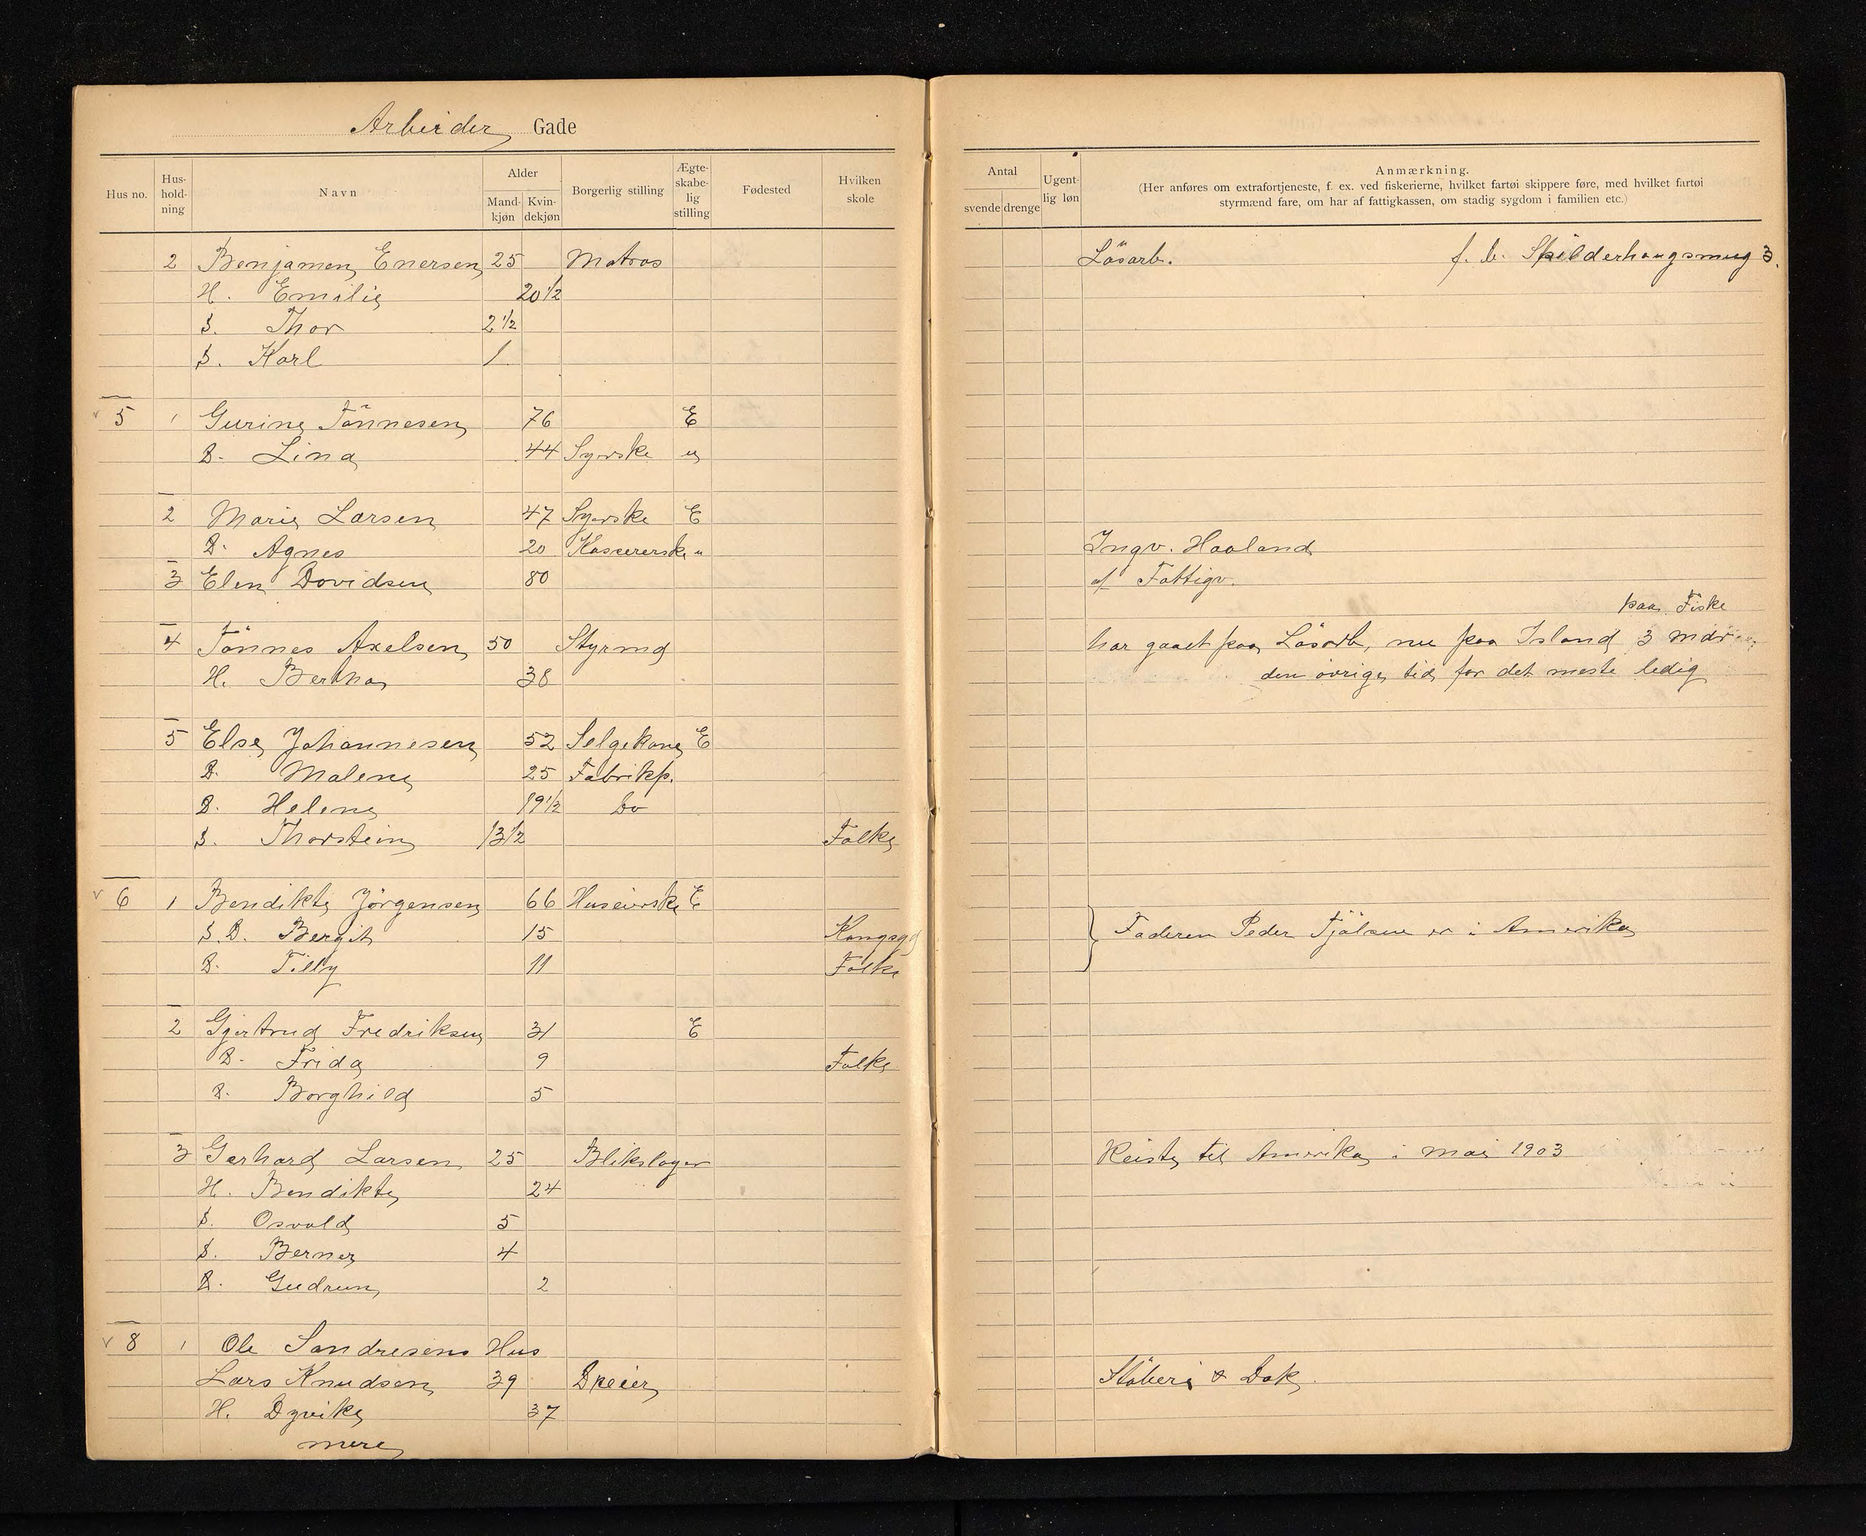 Arbeider Gade
Hus no. Hus-hold-ning Navn Alder Mand-kjøn Kvin-dekjøn Borgerlig stilling Ægte-skabe-lig stilling Fødested Hvilken skole
Antal svende drenge Ugent-lig løn Anmærkning.
(Her anføres om extrafortjeneste, f. ex. ved fiskerierne, hvilket fartøi skippere føre, med hvilket fartøi
styrmænd fare, om har af fattigkassen, om stadig sygdom i familien etc.)
2 Benjamen Enersen 25 Matros Lösarb. f. b. Skilderhaugsmug 3.
H. Emilie 20 1/2
S. Thor 2 1/2
S. Karl 1
5 1 Gurine Tönnesen 76 E
D. Lina 44 Syerske u
2 Marie Larsen 47 Syerske E
D. Agnes 20 Kassererske u Ingv. Haaland
3 Elen Davidsen 80 af Fattigv.
paa Fiske
4 Tönnes Axelsen 50 Styrmd har gaaet paa Lösarb, nu paa Island 3 mdr
H. Bertha 38 den övrige tid for det meste ledig
5 Else Johannesen 52 Selgekone E
D. Malene 25 Fabrikp.
D. Helene 19 1/2 Do
S. Thorstein 13 1/2 Folke
6 1 Bendikte Jörgensen 66 Huseierske E
S. D. Bergit 15 Kongsgd Faderen Peder Fjälsen er i Amerika
D. Tilly 11 Folke
2 Gjertrud Fredriksen 31 E
D. Frida 9 Folke
D. Borghild 5
3 Gerhard Larsen 25 Blikslager Reiste til Amerika i mai 1903
H. Bendikte 24
S. Osvald 5
S. Berner 4
D. Gudrun 2
8 1 Ole Sandresens Hus
Lars Knudsen 39 Dreier Stöberi & Dok
H. Dyvike 37
mere